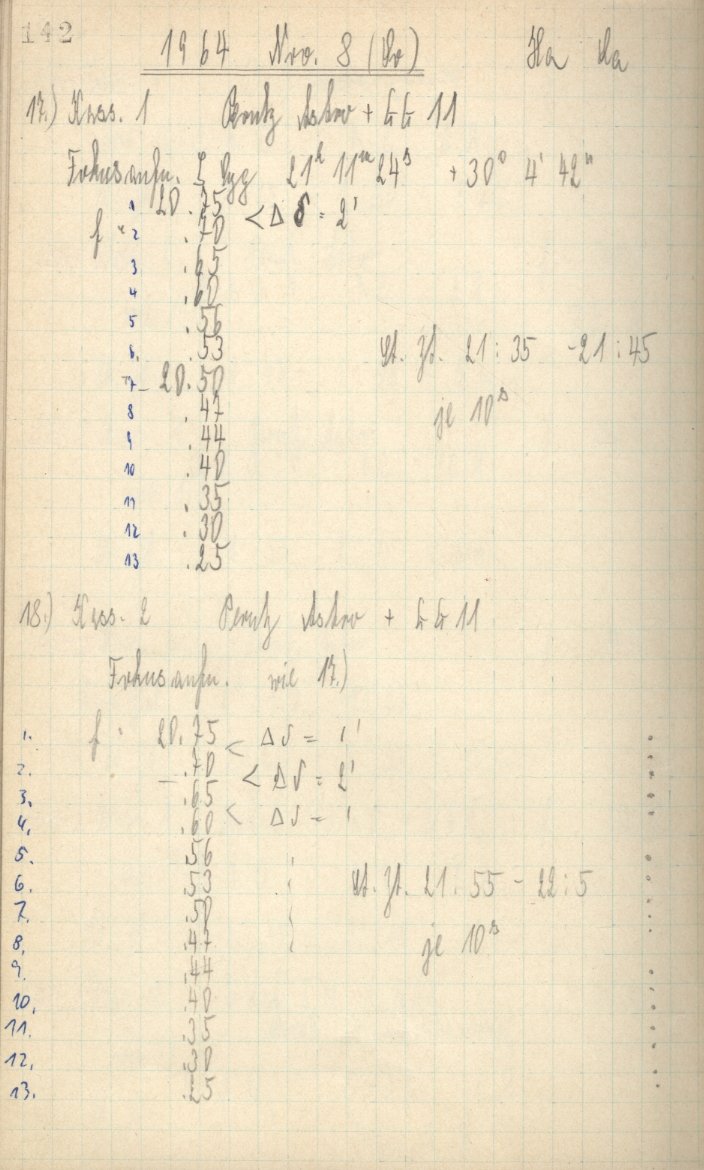 142
1964 Nov. 8 (So) Ha da
17.) Kass. 1 Perutz Astro + GG 11
Fokusaufn. ζ Cyg 21h 11m 24s + 30° 4' 42"
f = 1 20.75 < Δ δ = 2'
2 .70
3 .65
4 .60
5 .56
6. .53 St. Zt. 21:35 - 21:45
7 - 20.50
8 .47 je 10s
9 .44
10 .40
11 .35
12 .30
13 .25
18.) Kass. 2 Perutz Astro + GG 11
Fokusaufn. wie 17.)
1. f = 20.75 < Δδ = 1'
2. .70 < Δδ = 2'
3. .65
4. .60 < Δδ = 1
5. .56
6. .53 St. Zt. 21:55 - 22:5
7. .50
8. .47 je 10s
9. .44
10. .40
11. .35
12. .30
13. .25